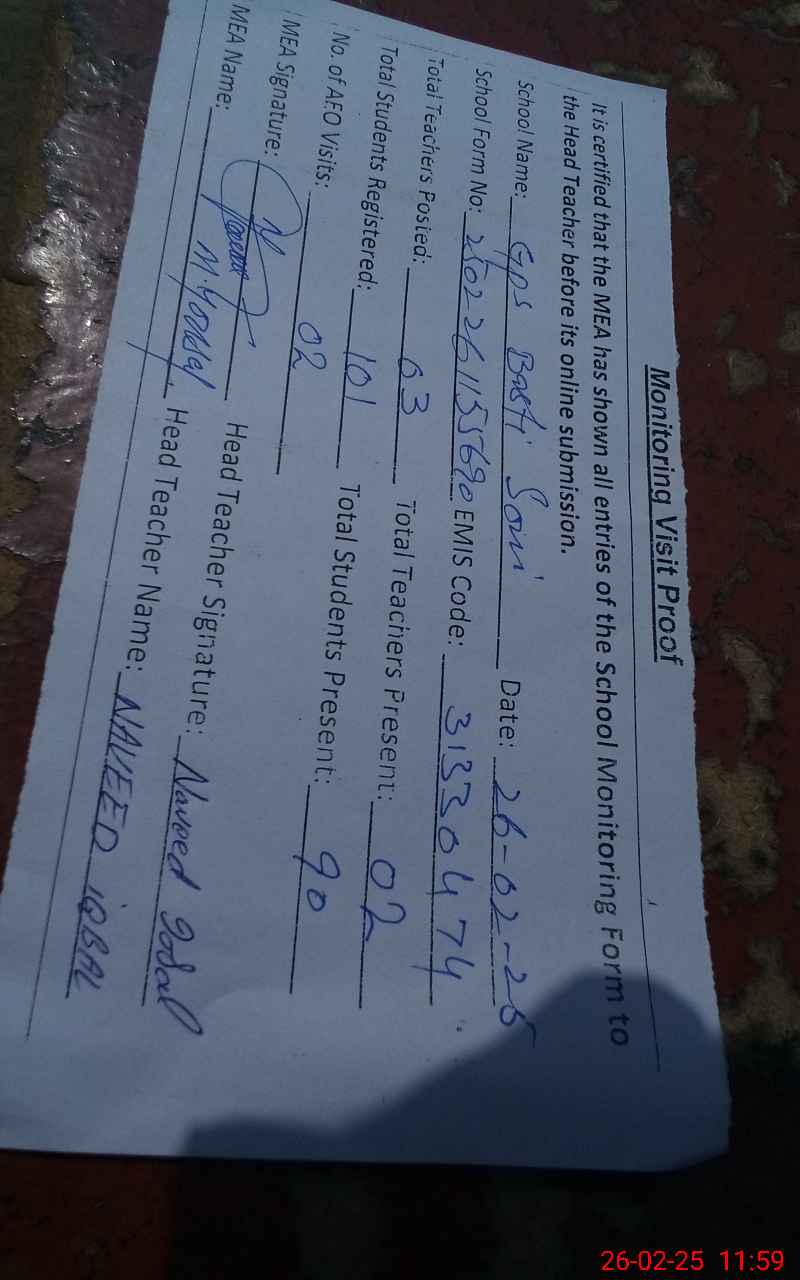 Monitoring Visit Proof
It is certified that the MEA has shown all entries of the School Monitoring Form to
the Head Teacher before its online submission.
School Name: Gps Basti Soni Date: 26-02-25
School Form No: 2502261155690 EMIS Code: 31330474
Total Teachers Posted: 03 Total Teachers Present: 02
Total Students Registered: 101 Total Students Present: 90
No. of AEO Visits: 02
MEA Signature: Head Teacher Signature: Naveed Iqbal
MEA Name: Head Teacher Name: NAVEED IQBAL
26-02-25 11:59